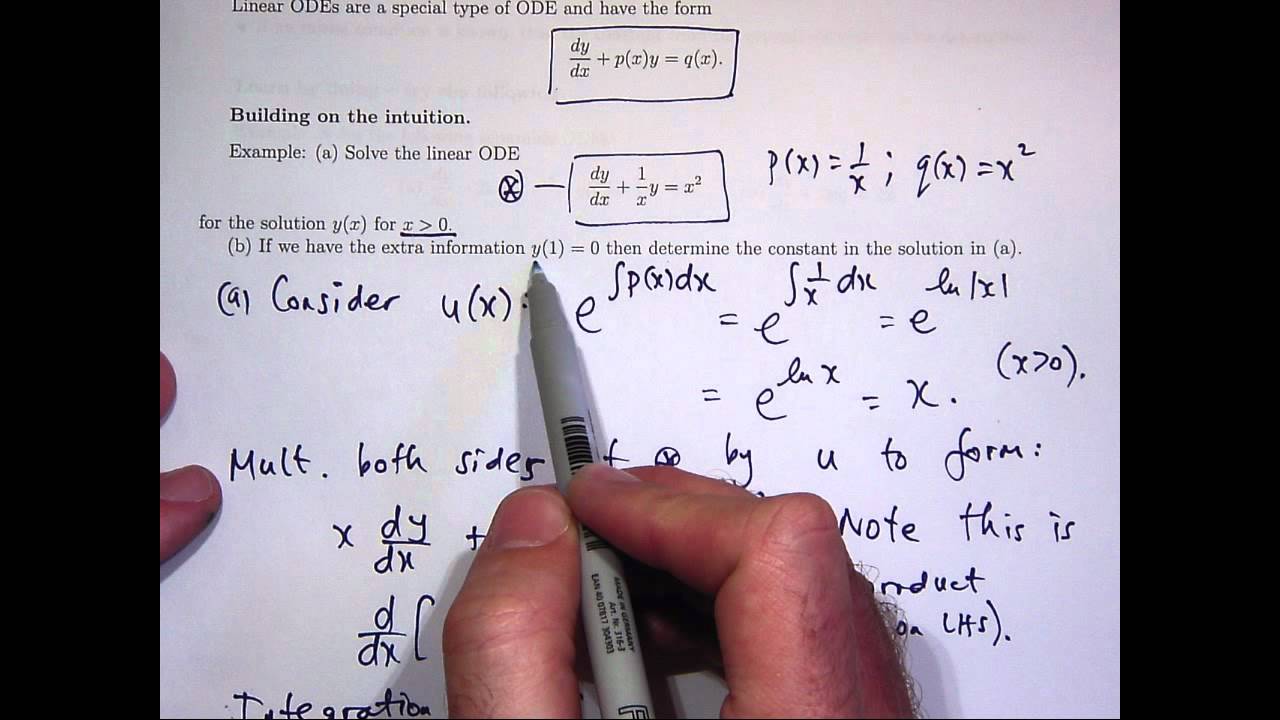 Linear ODEs are a special type of ODE and have the form
dy/dx + p(x)y = q(x).
Building on the intuition.
Example: (a) Solve the linear ODE
p(x) = 1/x ; q(x) = x²
⊛ — dy/dx + 1/x y = x²
for the solution y(x) for x > 0.
(b) If we have the extra information y(1) = 0 then determine the constant in the solution in (a).
(a) Consider u(x) : e^∫p(x)dx = e^∫1/x dx = e^ln|x|
= e^ln x = x. (x>0).
Mult. both sides ⊛ by u to form:
x dy/dx + Note this is
d/dx [
on LHS).
Integration
MADE IN GERMANY
Art. Nr. 316-3
EAN 40 07817 304303